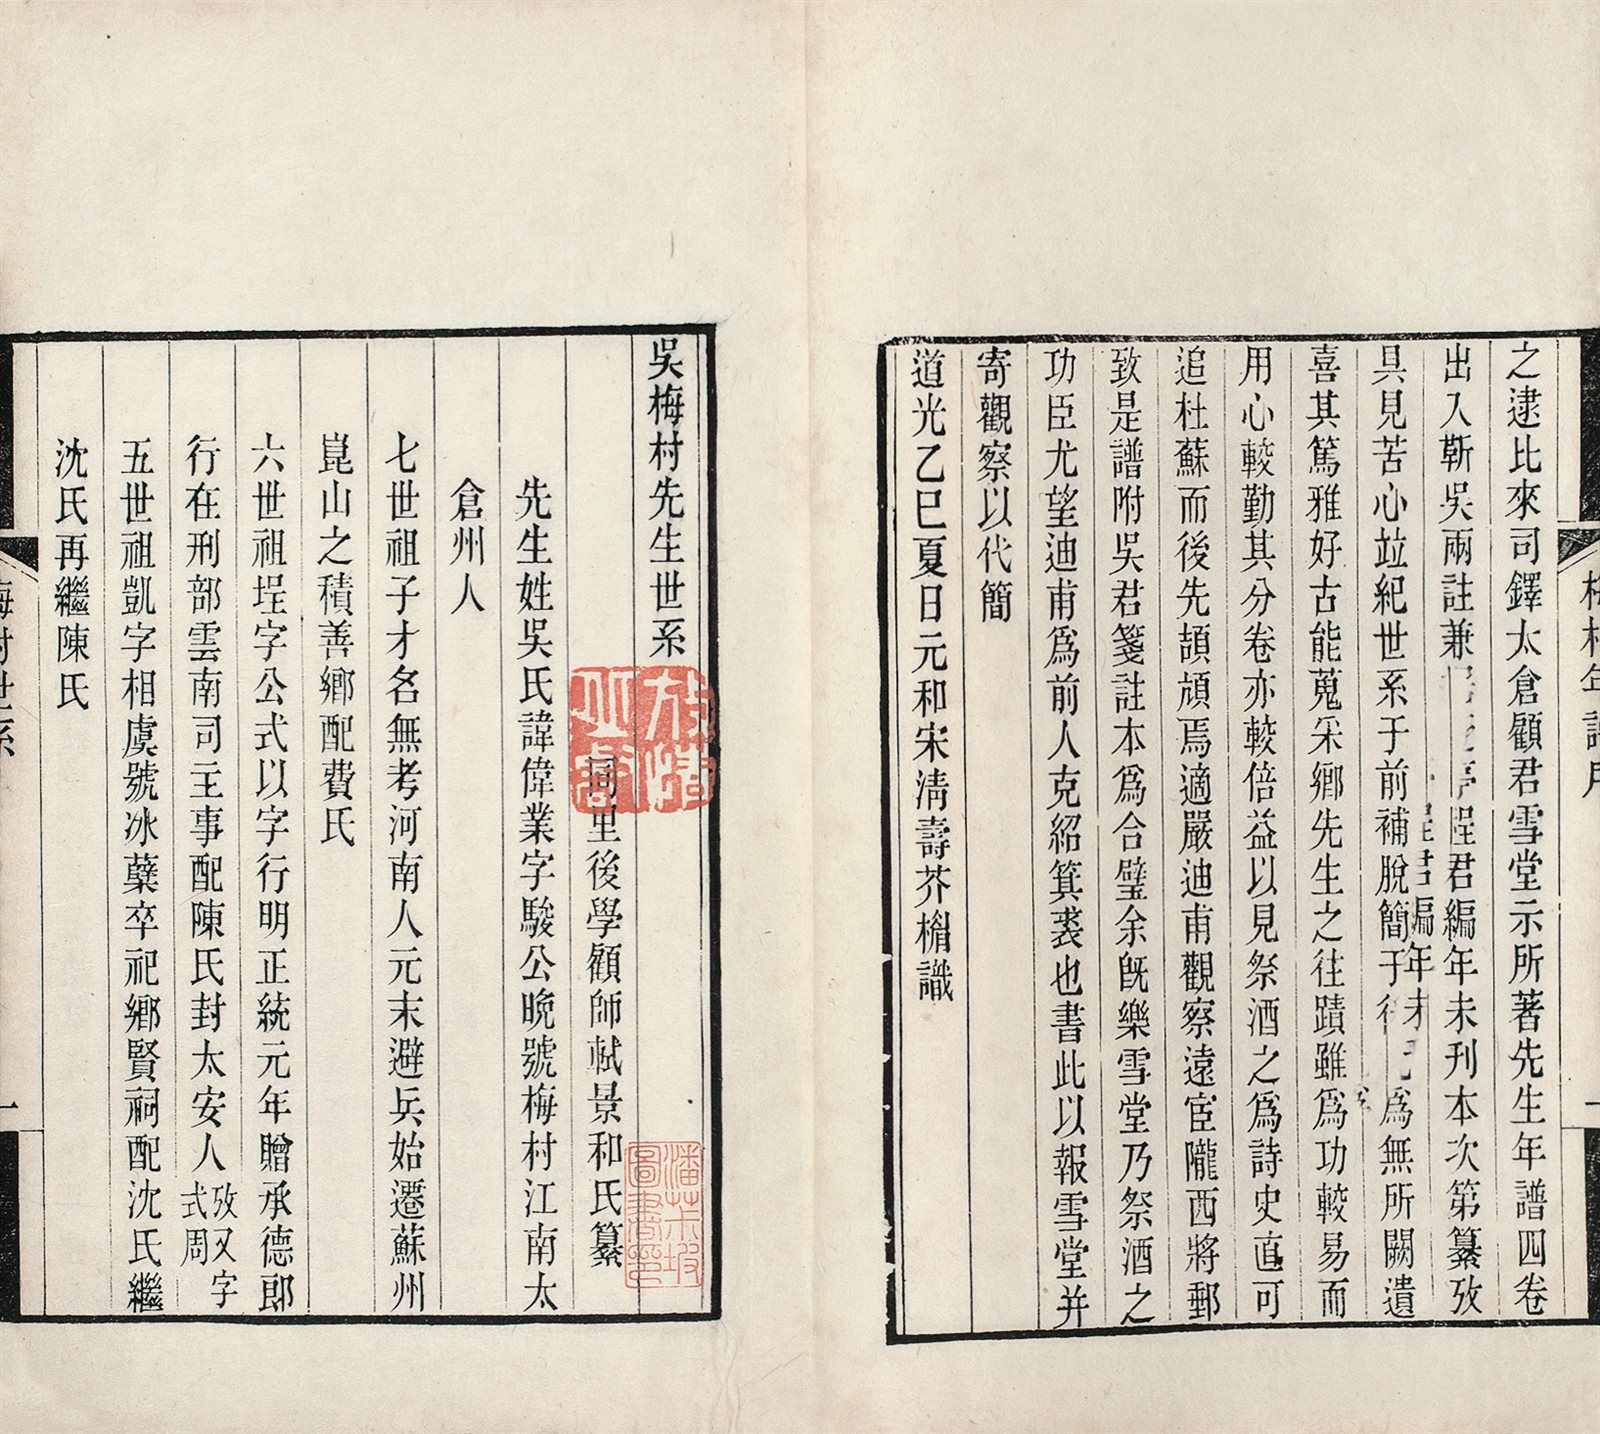 之逮比來司鐸太倉顧君雪堂示所著先生年譜四卷
出入靳吳兩註兼程君編年未刊本次第纂攷
具見苦心竝紀世系于前補脫簡于後為無所闕遺
喜其篤雅好古能蒐采鄉先生之往蹟雖為功較易而
用心較勤其分卷亦較倍益以見祭酒之為詩史直可
追杜蘇而後先頡頏焉適嚴迪甫觀察遠宦隴西將郵
致是譜附吳君箋註本為合璧余旣樂雪堂乃祭酒之
功臣尤望迪甫為前人克紹箕裘也書此以報雪堂并
寄觀察以代簡
道光乙巳夏日元和宋清壽芥楣識
梅村年譜序
吳梅村先生世系
同里後學顧師軾景和氏纂
先生姓吳氏諱偉業字駿公晚號梅村江南太
倉州人
七世祖子才名無考河南人元末避兵始遷蘇州
崑山之積善鄉配費氏
六世祖埕字公式以字行明正統元年贈承德郎
行在刑部雲南司主事配陳氏封太安人攷又字式周
五世祖凱字相虞號冰蘗卒祀鄉賢祠配沈氏繼
沈氏再繼陳氏
梅村世系
一
潘茮坡
圖書印